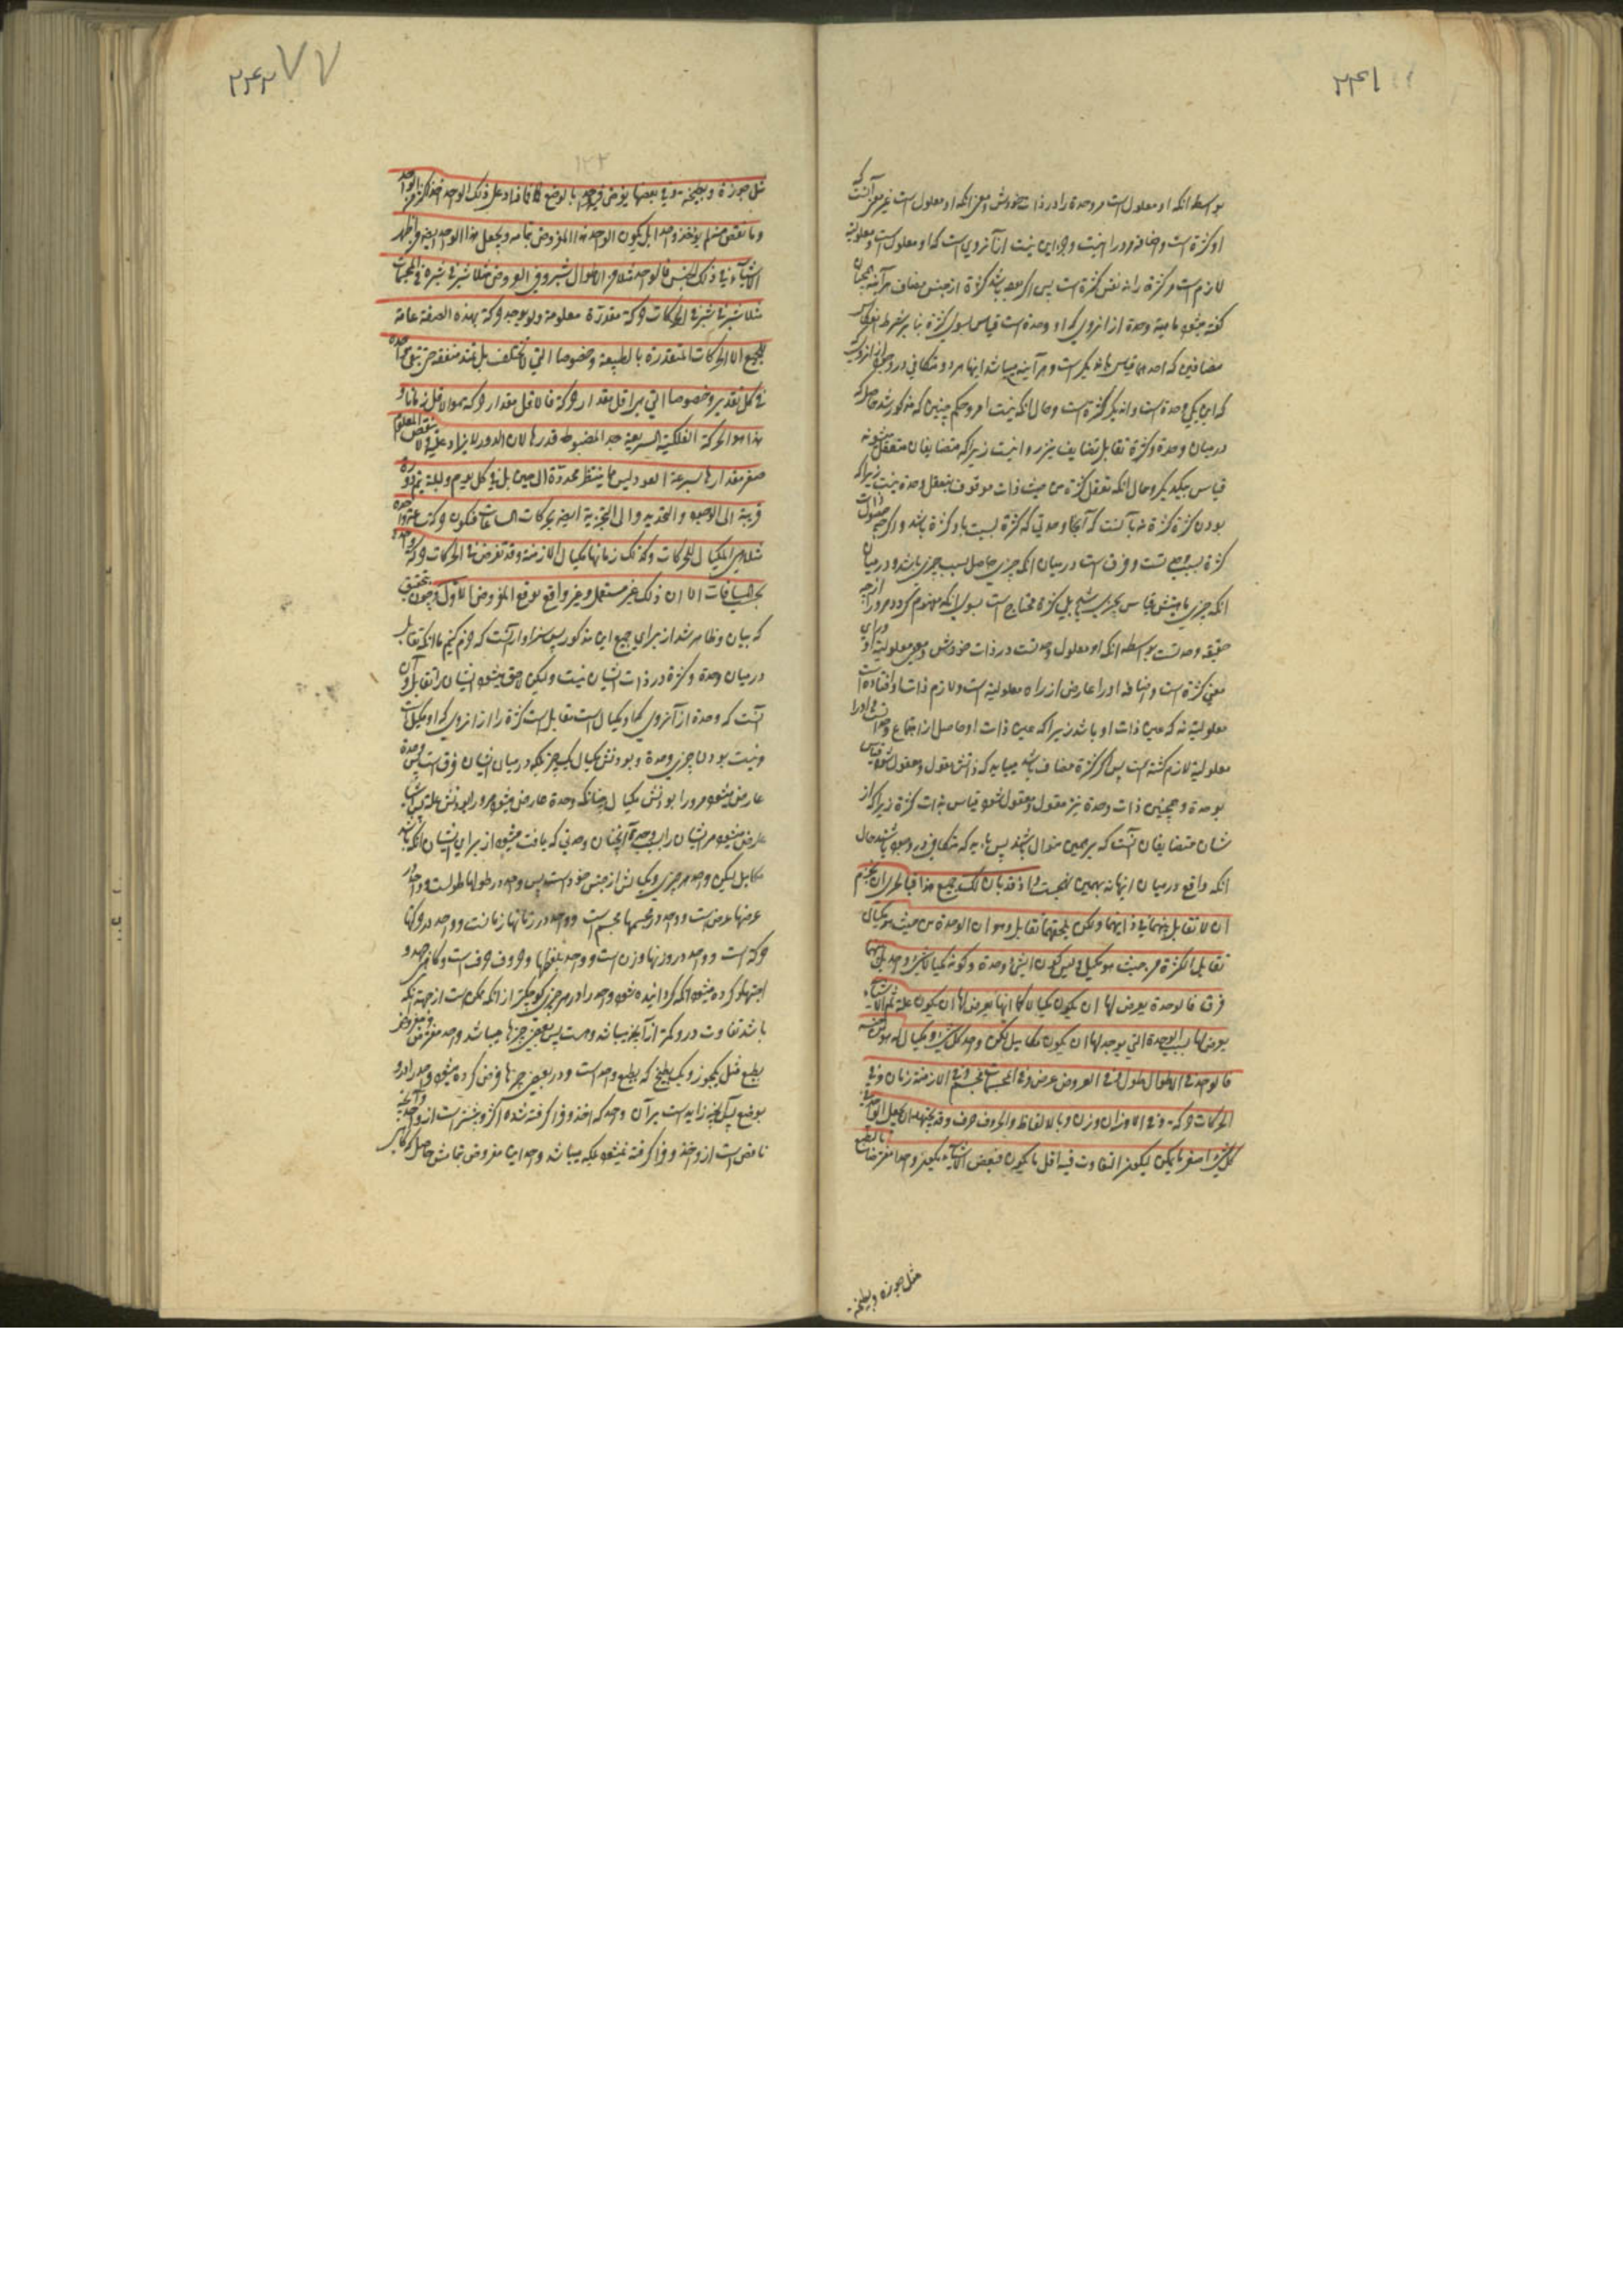 ۲۴۱
بواسطه انکه او معلول است مر وحدة را در ذات خودش و معنی انکه او معلول است غیر معنی آنست که
او کثرة است و اضافه و در او نیست وجه این نیت از آنروی است که او معلول است و معلولیة
لازم است مر کثرة را نه نفس کثرة است پس اگر بوده باشد کثرة از جنس مضاف هر آینه همچنان
گفته میشود ماهیة وحدة از انروی که او وحدة است قیاس بسوی کثرة بنا بر شرط انعکاس
مضافین که احدهما قیاس بآن دیگر است و هر آینه میباشد اینها هر دو متکافی در وجود از انروی
که این یکی وحدة است و ان دیگر کثرة است و حال انکه نیست امر و حکم چنین که مذکور شد حاصل که
درمیان وحدة و کثرة تقابل تضایف نیز روا نیست زیرا که متضایفان متعقل میشوند
قیاس بیکدیگر و حال انکه تعقل کثرة من حیث ذات موقوف بتعقل وحدة نیست زیرا که
بودن کثرة کثرة نه بآنست که آنجا وحدتی که کثرة بسبب او کثرة باشد و اگرچه ذات معلول
کثرة بسبب وحدتست و فرق است درمیان انکه چیزی حاصل بسبب چیزی باشد و درمیان
انکه چیزی ماهیتش قیاس بچیزی باشد بلی کثرة محتاج است بسوی انکه مفهوم گردد مر او را از جهة
حقیقة وحدتست بواسطه انکه او معلول وحدتست در ذات خودش و معنی معلولیة او ورای
معنی کثرة است و اضافه او را عارض از راه معلولیة است و لازم ذات او افتاده است
معلولیة نه که عین ذات او باشد زیرا که عین ذات او حاصل از اجتماع وحداتست و او را
معلولیة لازم گشته است پس اگر کثرة مضاف باشد میباید که ذاتش مقول و معقول شود قیاس
بوحدة و همچنین ذات وحدة نیز مقول و معقول شود قیاس بذات کثرة زیرا که از
شان متضایفان آنست که بر همین منوال باشند پس باید که متکافی در وجود باشند حال
انکه واقع درمیان اینها نه بهمین نهجست و اذ قد بان لک جمیع هذا فبالحری ان تجزم
ان لا تقابل بینهما فی ذاتیهما ولکن یلحقهما تقابل وهو ان الوحدة من حیث هو مکیال
تقابل الکثرة من حیث هو مکیل و لیس کون الشئ وحدة و کونه مکیالا شئ واحد بل بینهما
فرق فالوحدة یعرض لها ان یکون مکیالا کما انها یعرض لها ان یکون علة ثم الاشیاء
یعرض لها بسبب الوحدة التی یوجد لها ان یکون مکاییل لکن واحد کل شئ و مکیاله هو من جنسه
فالواحد فی الاطوال طول و فی العروض عرض و فی المجسمات مجسم و فی الازمنة زمان و فی
الحرکات حرکة و فی الاوزان وزن و بالالفاظ و الحروف حرف و قد یجتهد ان یجعل الواحد فی
کل شئ اصغر ما یمکن لیکون التفاوت فیه اقل ما یکون فبعض الاشیاء یکون واحدها مفترضا بالطبع
مثل جوزة و بطیخة
۲۴۲
۱۲۲
مثل جوزة و بطیخة و فی بعضها یفرض فیه واحد بالوضع فما زاد علی ذلک الواحد اخذ اکثر من الواحد
و ما نقص منه لم یؤخذ واحدا بل یکون الواحد هذا المفروض بتمامه و یجعل هذا الواحد ایضا من اظهر
الاشیاء فی ذلک الجنس فالواحد مثلا فی الاطوال شبر و فی العروض مثلا شبر فی شبره و فی المجسمات
مثلا شبر فی شبر فی الحرکات حرکة مقدرة معلومة و لم یوجد حرکة بهذه الصفة عامة
للجمیع الا الحرکات المتقدرة بالطبیعة و خصوصا التی لا تختلف بل تمتد متفقة حتی تبقی واحدة
فی کل تقدیر و خصوصا التی هی اقل مقدار حرکة فالاقل مقدار حرکة هو الاقل زمانا و
هذا هو الحرکة الفلکیة السریعة جدا المضبوط قدرها لان الدور لا یزاد علیه و لا ینقص المعلوم
صغر مقدارها بسرعة العود لیس مما ینتظر تجدده الی حین بل فی کل یوم و لیلة یتم دورة
قریبة الی الوجود و التحدید و الی التجزیة ایضا بحرکات الساعات فیکون حرکة ساعة واحدة
مثلا هی المکیال للحرکات و کذلک زمانها مکیال الازمنة و قد تفرض فی الحرکات حرکة واحدة
بحسب المسافات الا ان ذلک غیر مستعمل و غیر واقع موقع المفروض الاول و چون بتحقیق
که بیان و ظاهر شد از برای جمیع این مذکور پس سزاوار آنست که جزم کنیم ما انکه تقابل
درمیان وحدة و کثرة در ذات ایشان نیست ولیکن لاحق میشود ایشان را تقابل و آن
آنست که وحدة از آنروی که او مکیال است مقابل است کثرة را از انروی که او مکیل است
و نیست بودن چیزی وحدة و بودنش مکیال یک چیز بلکه درمیان ایشان فرق است پس وحدة
عارض میشود مر او را بودنش مکیال چنانکه وحدة عارض میشود مر او را بودنش علة پس اشیا
عارض میشود مر ایشان را بسبب وحدة آنچنان وحدتی که یافت میشود از برای ایشان انکه باشند
مکاییل لیکن واحد هر چیزی و مکیالش از جنس خود است پس واحد در طولها طولست و واحد در
عرضها عرض است و واحد در مجسمها مجسم است و واحد در زمانها زمانست و واحد در حرکتها
حرکة است و واحد در وزنها وزن است و واحد بلفظها و حروف حرف است و گاهی جد و
اجتهاد کرده میشود انکه گردانیده شود واحد را در هر چیزی کوچکتر از انکه ممکن است از جهة انکه
باشد تفاوت در او کمتر از آنچه میباشد و هست پس بعضی چیزها میباشد واحد مفترض و مفروض
بطبع مثل یکجوز و یک بطیخ که بطبع واحد است و در بعضی چیزها فرض کرده میشود واحد در او
بوضع پس آنچه زاید است بر آن واحد که اخذ و فرا گرفته شده اکثر و بیشتر است از واحد و آنچه
ناقص است از او اخذ و فرا گرفته نمیشود بلکه میباشد واحد این مفروض بتمامش حاصل که گاهی